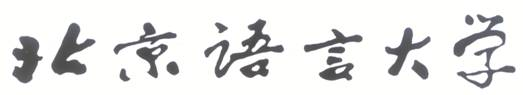 北京语言大学